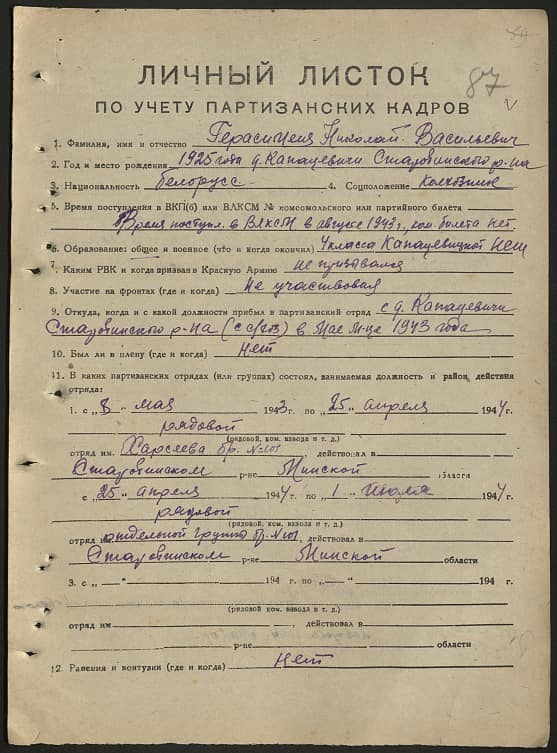 87
ЛИЧНЫЙ ЛИСТОК
ПО УЧЕТУ ПАРТИЗАНСКИХ КАДРОВ
1. Фамилия, имя и отчество Герасименя Николай Васильевич
2. Год и место рождения 1925 года д. Капацевичи Старобинского р-на
3. Национальность белорусс 4. Соцположение колхозник
5. Время поступления в ВКП(б) или ВЛКСМ № комсомольского или партийного билета
Время поступл. в ВЛКСМ в августе 1943 г. ком. билета нет.
6. Образование: общее и военное (что и когда окончил) 4 класса Капацевицкой НСШ
7. Каким РВК и когда призван в Красную Армию не призывался
8. Участие на фронтах (где и когда) Не участвовал
9. Откуда, когда и с какой должности прибыл в партизанский отряд с д. Капацевичи
Старобинского р-на (с с/хоз) в Мае м-це 1943 года
10. Был ли в плену (где и когда) Нет
11. В каких партизанских отрядах (или группах) состоял, занимаемая должность и район действия
отряда:
1. с „8“ мая 1943 г. по „25“ апреля 1944 г.
рядовой
(рядовой, ком. взвода и т. д.)
отряд им. бр. №101 действовал в
Старобинском р-не Минской области
с „25“ апреля 1944 г. по „1“ июля 1944 г.
рядовой
(рядовой, ком. взвода и т. д.)
отряд им. отдельной группа бр. №101, действовал в
Старобинском р-не Минской области
3. с „ “ 194 г. по „ “ 194 г.
(рядовой, ком. взвода и т. д.)
отряд им. , действовал в
р-не области
12. Ранения и контузии (где и когда) Нет